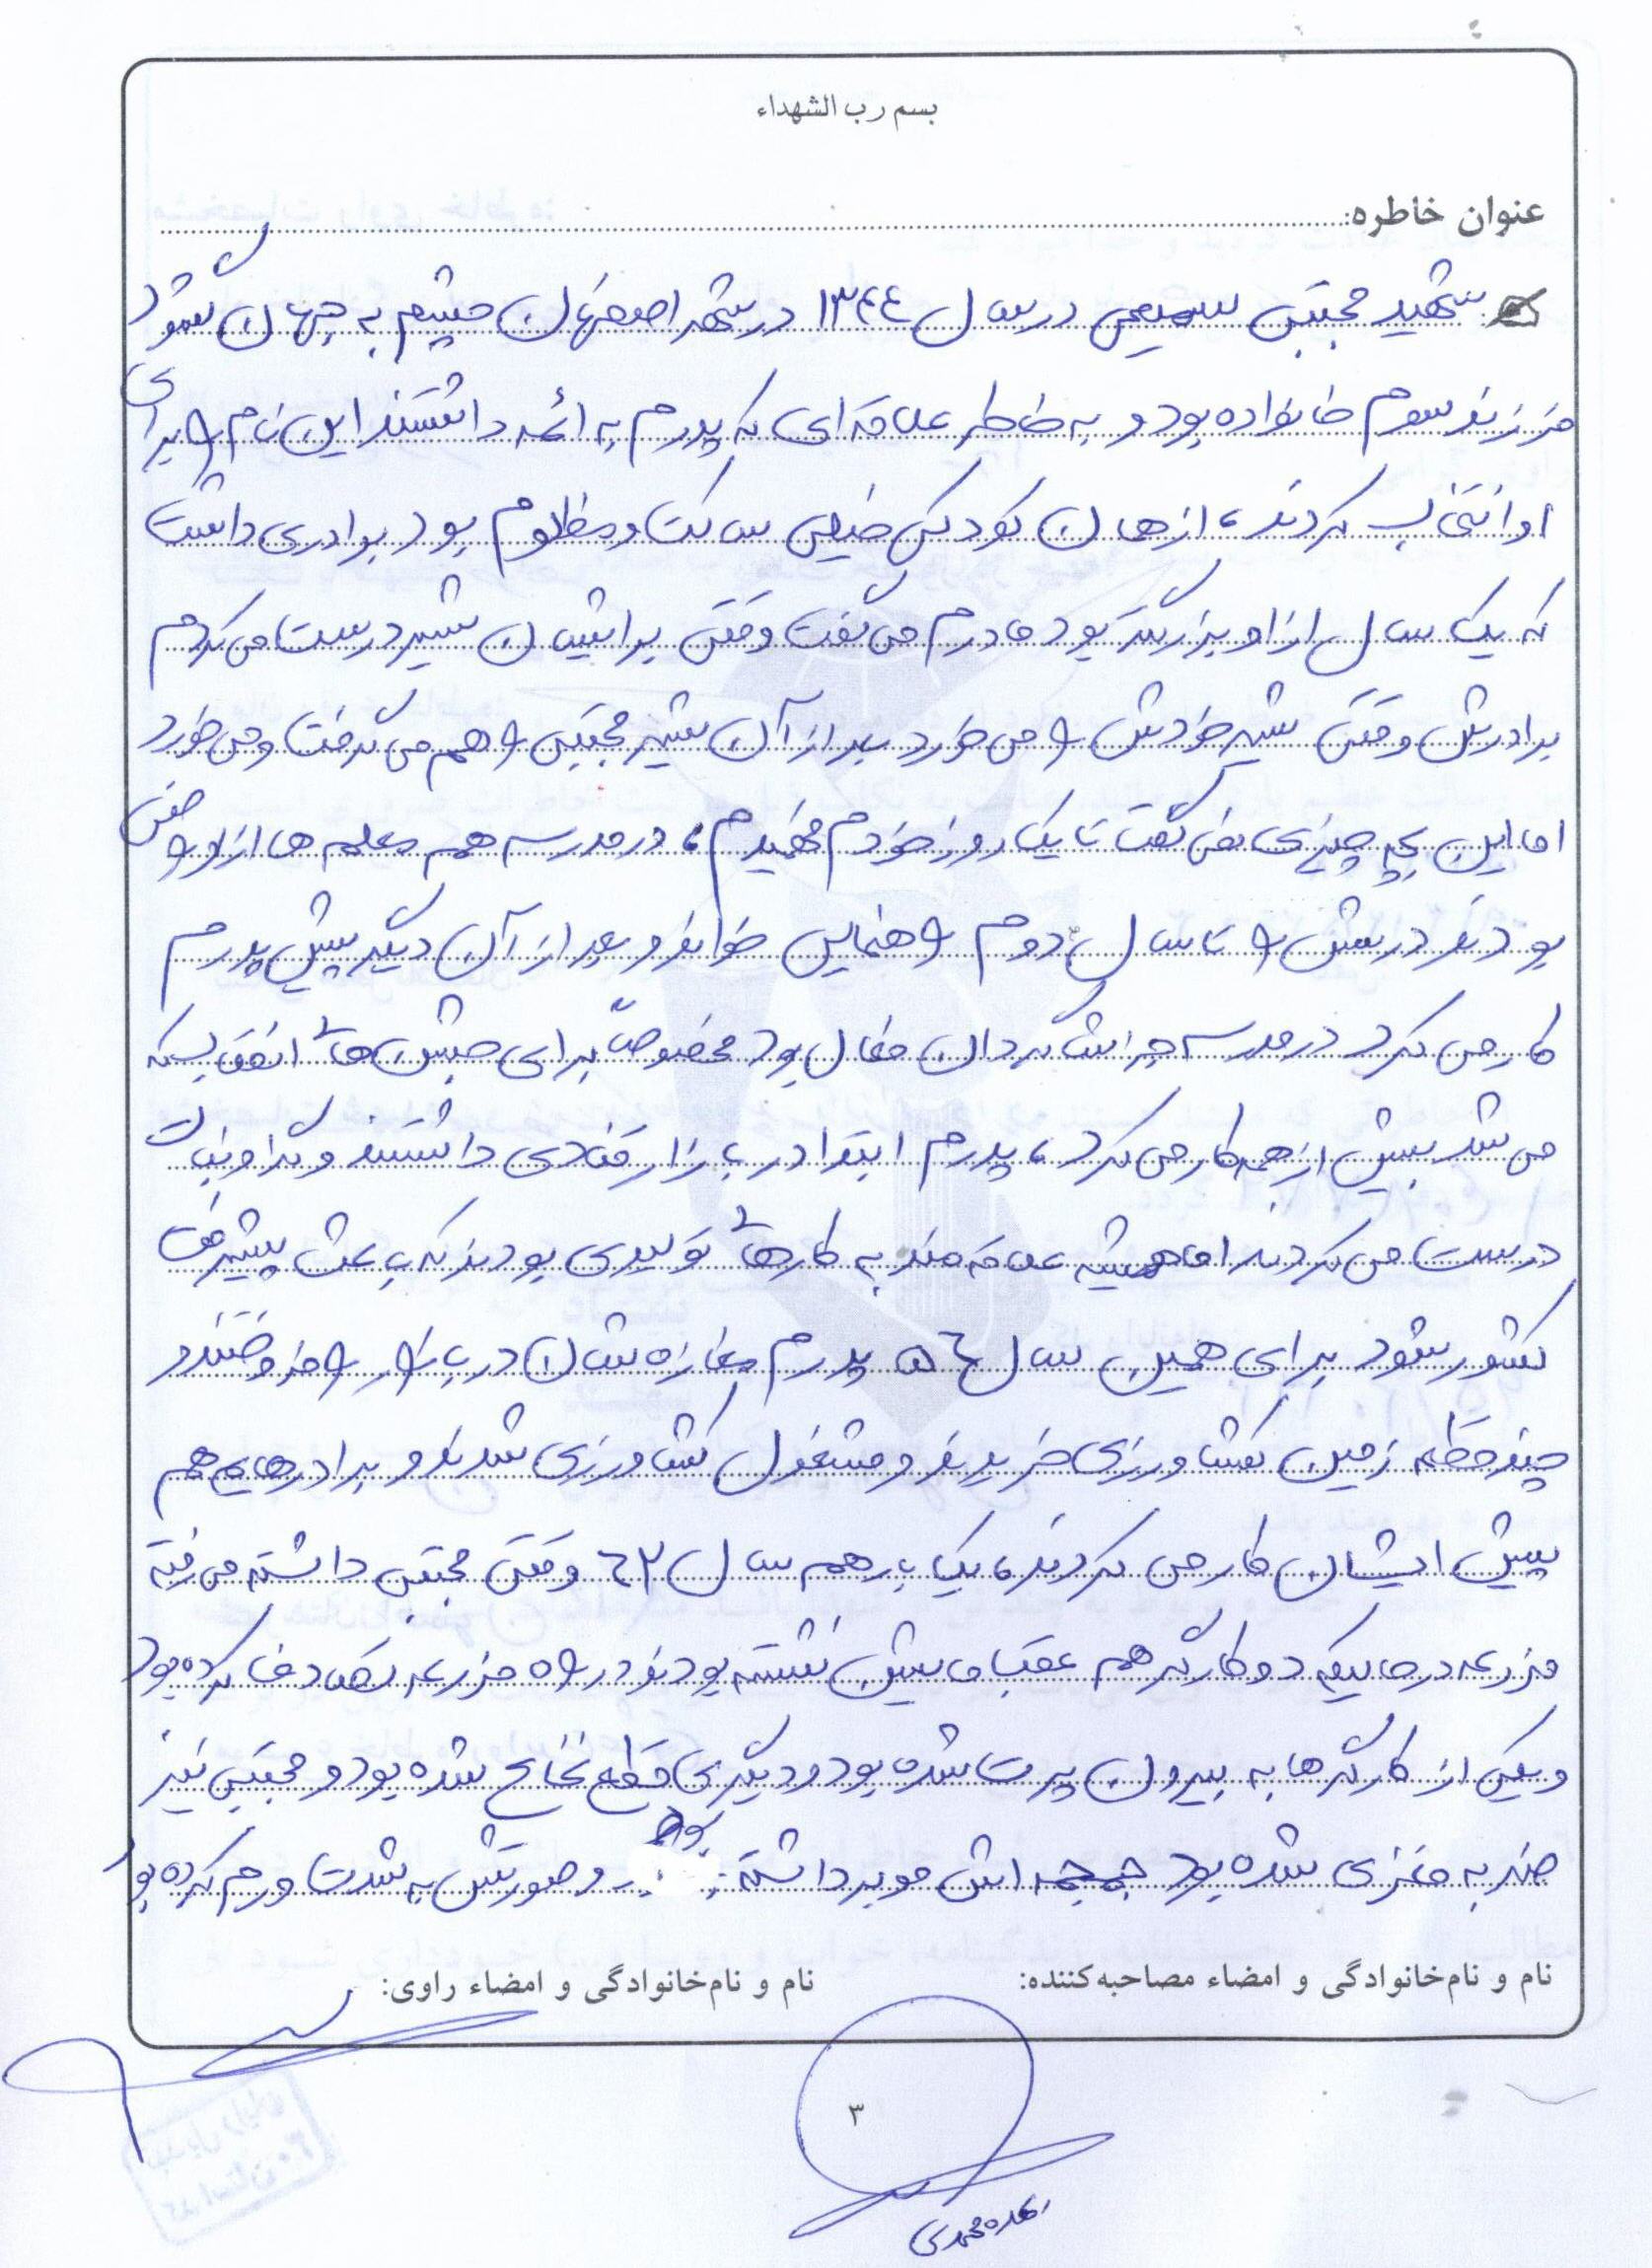 بسم رب الشهداء
عنوان خاطره:
شهید مجتبی سمیعی در سال ۱۳۴۴ در شهر اصفهان چشم به جهان گشود
فرزند سوم خانواده بود و به خاطر علاقه‌ای که پدرم به ائمه داشتند این نام را برای
او انتخاب کردند، از همان کودکی خیلی ساکت و مظلوم بود برادری داشت
که یک سال از او بزرگتر بود مادرم می گفت وقتی برایشان شیر درست می کردم
برادرش وقتی شیر خودش را می خورد بعد از آن شیر مجتبی را هم می گرفت و می خورد
اما این بچه چیزی نمی گفت تا یک روز خودم فهمیدم، در مدرسه هم معلم ها از او راضی
بودند درسش را تا سال دوم راهنمایی خواند و بعد از آن دیگر پیش پدرم
کار می کرد در مدرسه جز شاگردان فعال بود مخصوصاً برای جشن های انقلاب که
می شد بیش از همه کار می کرد، پدرم ابتدا در بازار قنادی داشتند و گز و نبات
درست می کردند اما همیشه علاقه مند به کارهای تولیدی بودند که باعث پیشرفت
کشور شود برای همین سال ۵۶ پدرم مغازه شان در بازار را فروختند و
چند قطعه زمین کشاورزی خریدند و مشغول کشاورزی شدند و برادرهایم هم
پیش ایشان کار می کردند، یک بار هم سال ۶۲ وقتی مجتبی داشته می رفته
مزرعه در حالیکه دو کارگر هم عقب ماشین نشسته بودند در راه مزرعه تصادف کرده بود
و یکی از کارگرها به بیرون پرت شده بود و دیگری قطع نخاع شده بود و مجتبی نیز
ضربه مغزی شده بود جمجمه اش مو برداشته بود و صورتش به شدت ورم کرده بود
نام و نام‌خانوادگی و امضاء مصاحبه‌کننده:
نام و نام‌خانوادگی و امضاء راوی:
۳